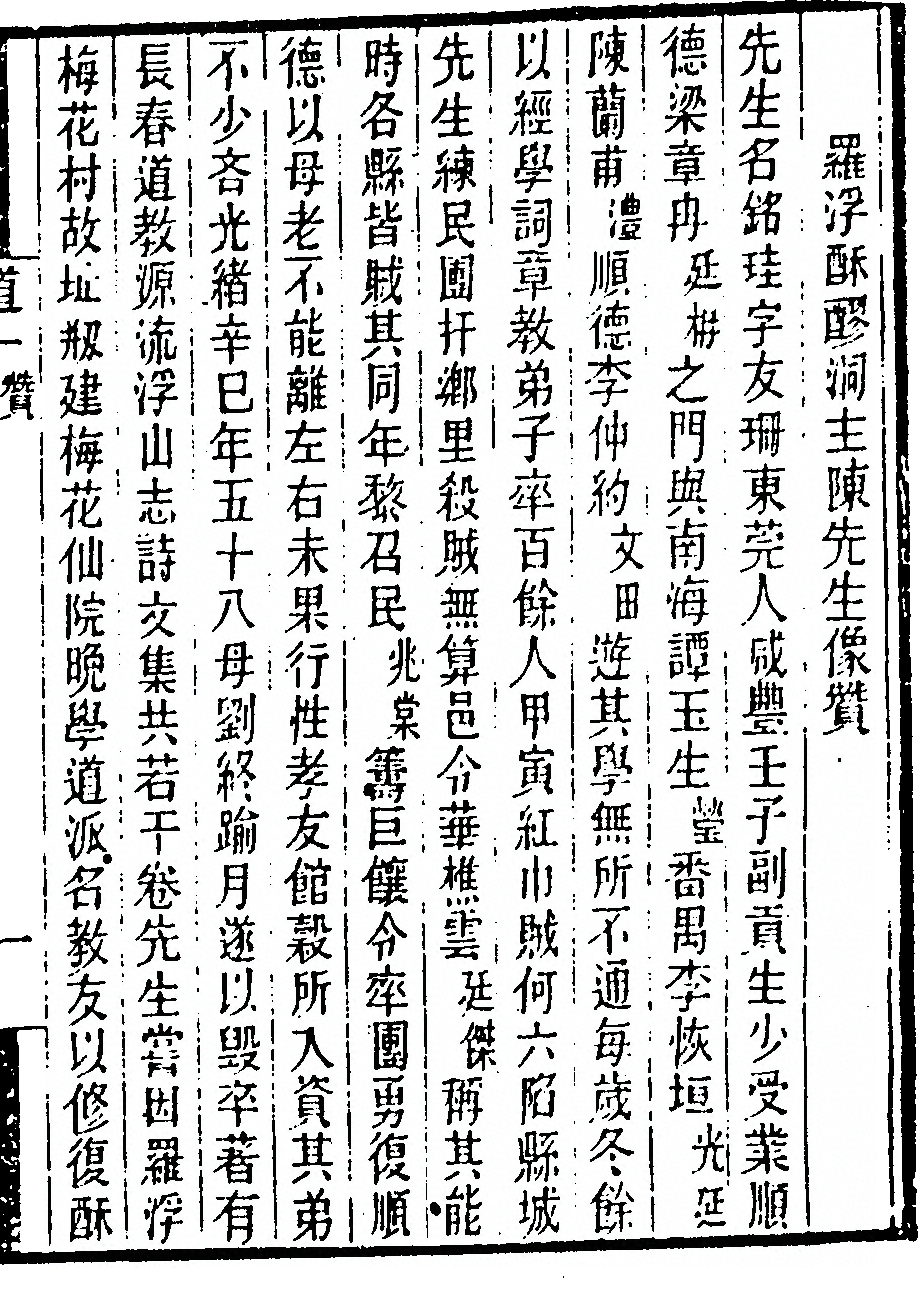 羅浮酥醪洞主陳先生像贊
先生名銘珪字友珊東莞人咸豐壬子副貢生少受業順
德梁章冉廷枏之門與南海譚玉生瑩番禺李恢垣光廷
陳蘭甫澧順德李仲約文田遊其學無所不通每歲冬餘
以經學詞章教弟子率百餘人甲寅紅巾賊何六陷縣城
先生練民團扞鄉里殺賊無算邑令華樵雲廷傑稱其能
時各縣皆賊其同年黎召民兆棠籌巨饟令率團勇復順
德以母老不能離左右未果行性孝友館穀所入資其弟
不少吝光緒辛巳年五十八母劉終踰月遂以毀卒著有
長春道教源流浮山志詩文集共若干卷先生嘗因羅浮
梅花村故址剏建梅花仙院晚學道派名教友以修復酥
道一贊
一